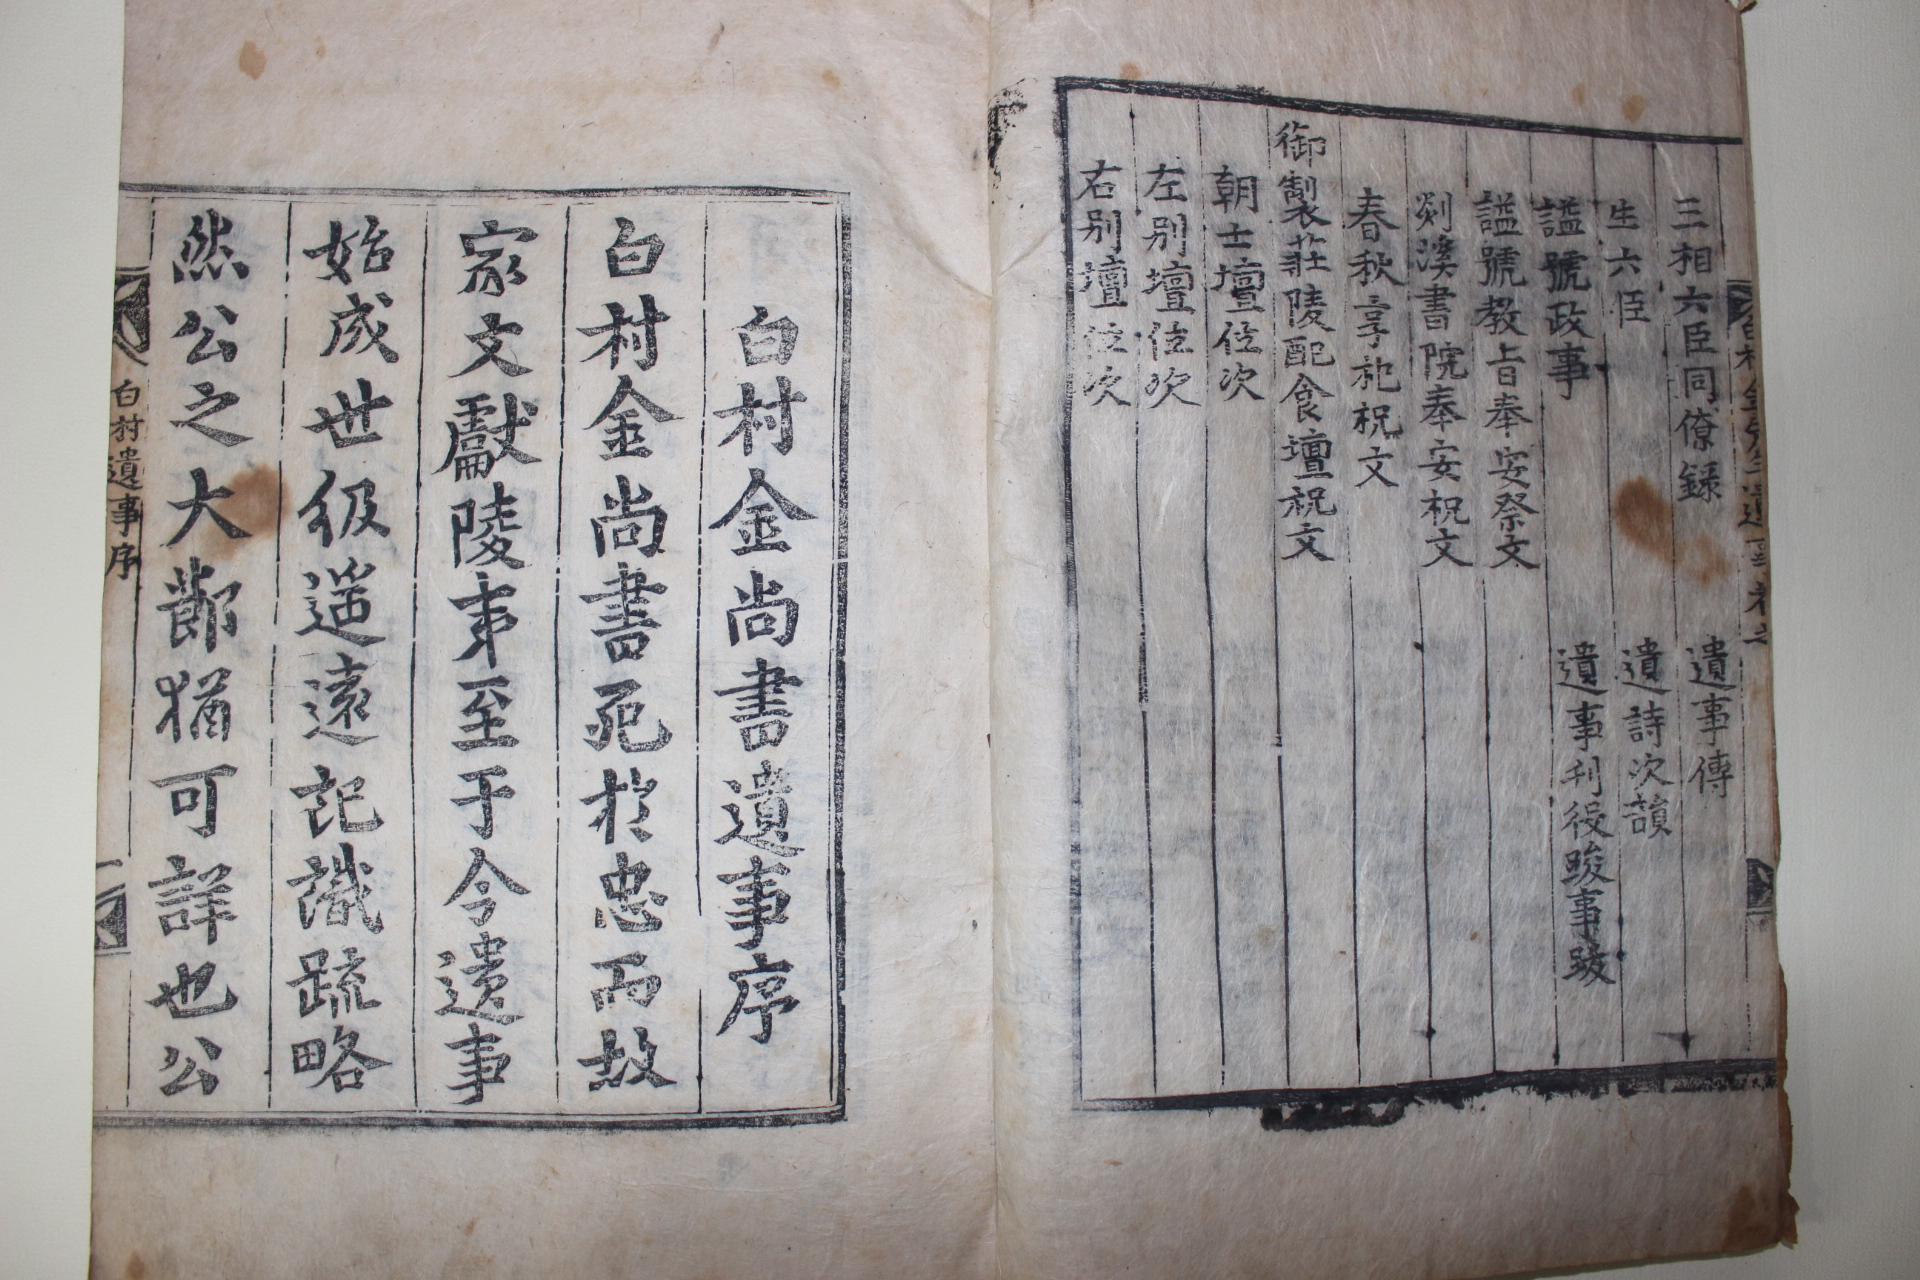 三相六臣同僚錄 遺事傳
生六臣 遺詩次韻
諡號政事 遺事刊役跋事跋
諡號教旨奉安祭文
剡溪書院奉安祝文
春秋享祀祝文
御製莊陵配食壇祝文
朝士壇位次
左別壇位次
右別壇位次
白村金尚書遺事序
白村金尚書死於忠而故
家文獻陵夷至于今遺事
始成世級遥遠記識疏略
然公之大節猶可詳也公
白村遺事序